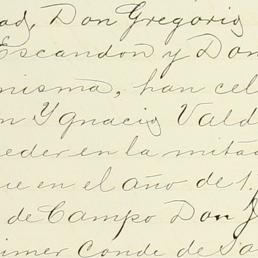 ad, Don Gregorio
Escandon y Don
misma, han cel
n Ygnacio Vald
eder en la mitad
ue en el año de 1.
de Campo Don J
rimer Conde de Sa